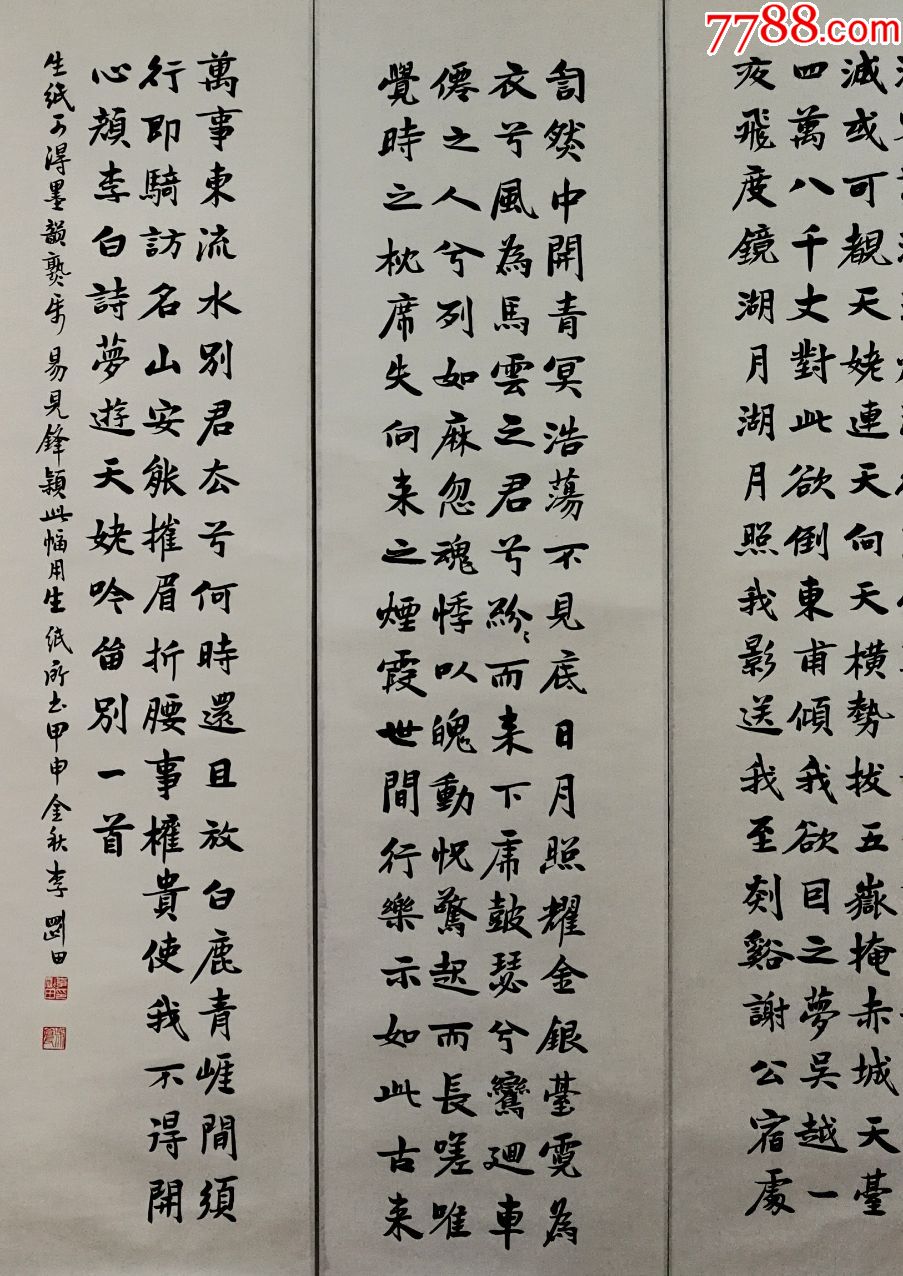 7788.com
滅或可觀天姥連天向天橫勢拔五嶽掩赤城天臺
四萬八千丈對此欲倒東南傾我欲因之夢吳越一
夜飛度鏡湖月湖月照我影送我至剡谿謝公宿處
訇然中開青冥浩蕩不見底日月照耀金銀臺霓為
衣兮風為馬雲之君兮紛〻而来下虎鼓瑟兮鸞迴車
僊之人兮列如麻忽魂悸以魄動怳驚起而長嗟唯
覺時之枕席失向来之煙霞世間行樂亦如此古来
萬事東流水別君去兮何時還且放白鹿青崖間須
行即騎訪名山安能摧眉折腰事權貴使我不得開
心顔李白詩夢遊天姥吟留別一首
生紙可得墨韻熟紙易見鋒穎此幅用生紙所书甲申金秋李剛田